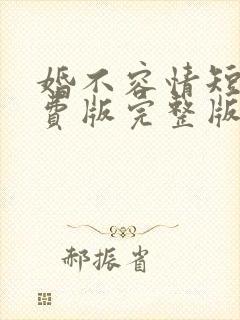 婚不容情短
费版完整版
郝振省